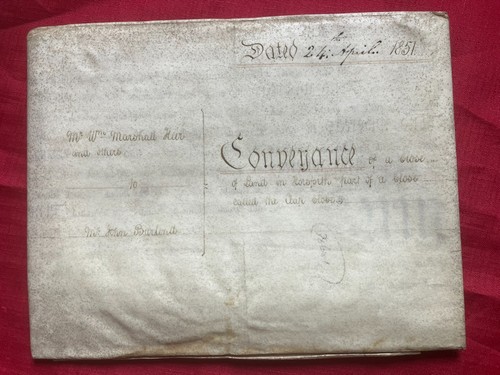 Dated 24th April 1851
Mr Wm Marshall
and others
to
Mr John Burland
Conveyance of a close
of Land in part of a close
called the closes